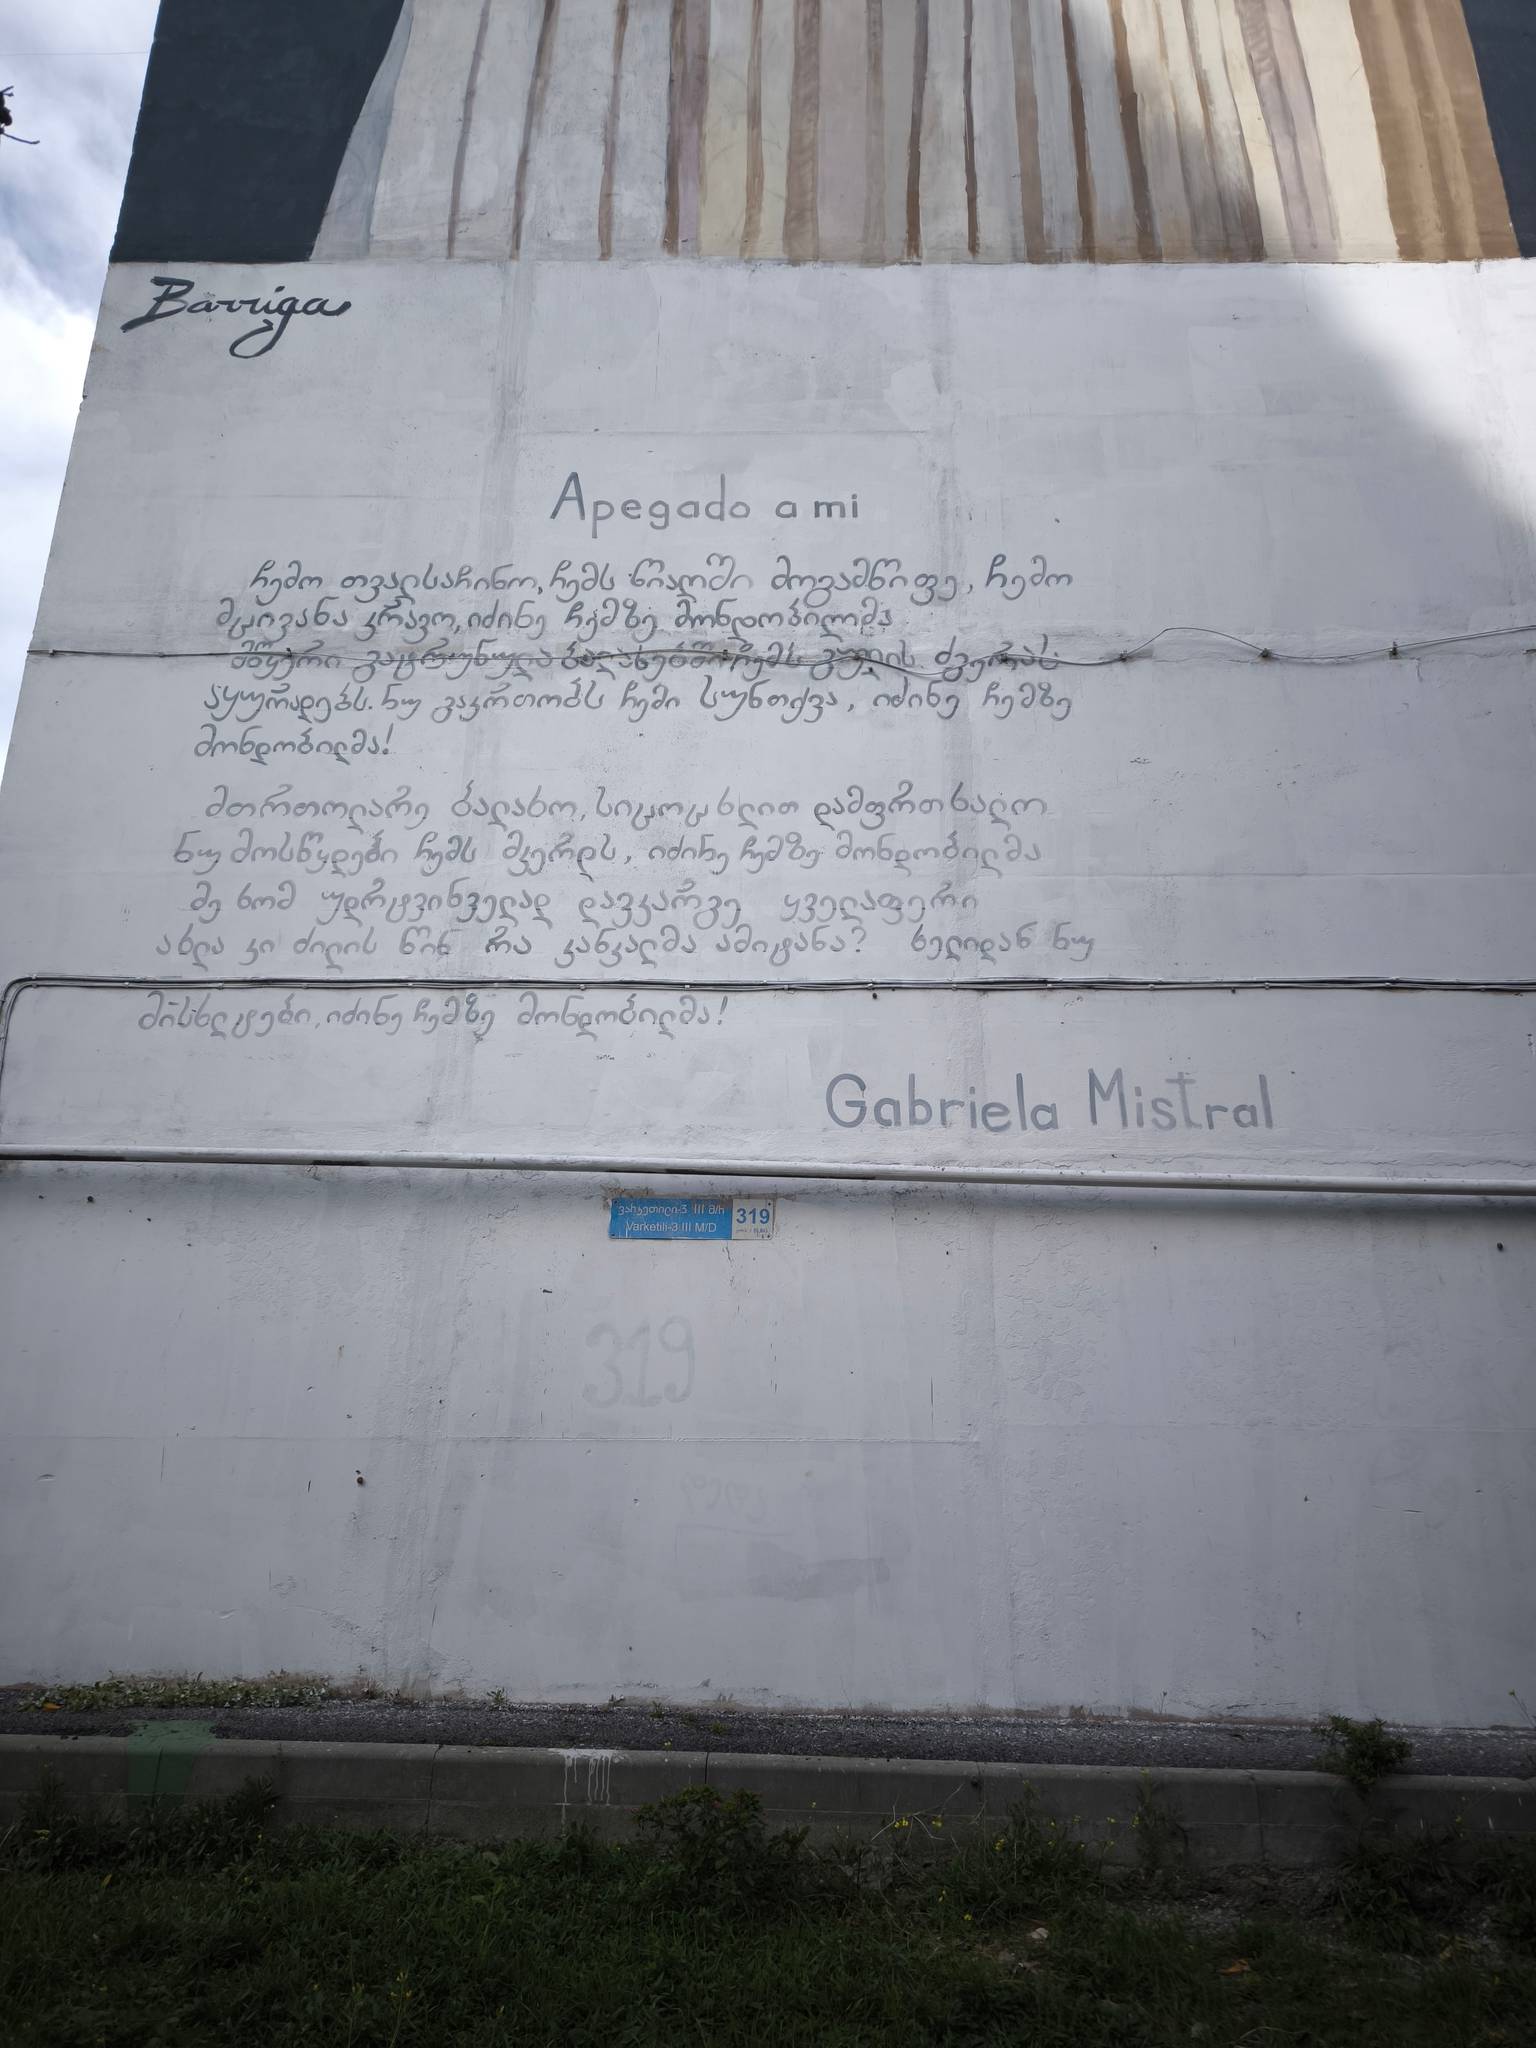 Barriga
Apegado a mi
ჩემო თვალსაჩინო, ჩემს წიაღში მოგამწიფე, ჩემო
მცივანა კრავო, იძინე ჩემზე მონდობილმა
მწყერი გატრუნულა ბალახებში ჩემს გულის ძგერას
აყურადებს. ნუ გაკრთობს ჩემი სუნთქვა, იძინე ჩემზე
მონდობილმა!
მთრთოლარე ბალახო, სიცოცხლით დამფრთხალო
ნუ მოსწყდები ჩემს მკერდს, იძინე ჩემზე მონდობილმა
მე ხომ უდრტვინველად დავკარგე ყველაფერი
ახლა კი ძილის წინ რა კანკალმა ამიტანა? ხელიდან ნუ
მისხლტები, იძინე ჩემზე მონდობილმა!
Gabriela Mistral
ვარკეთილი-3 III მ/რ 319
Varketili-3 III M/D
319